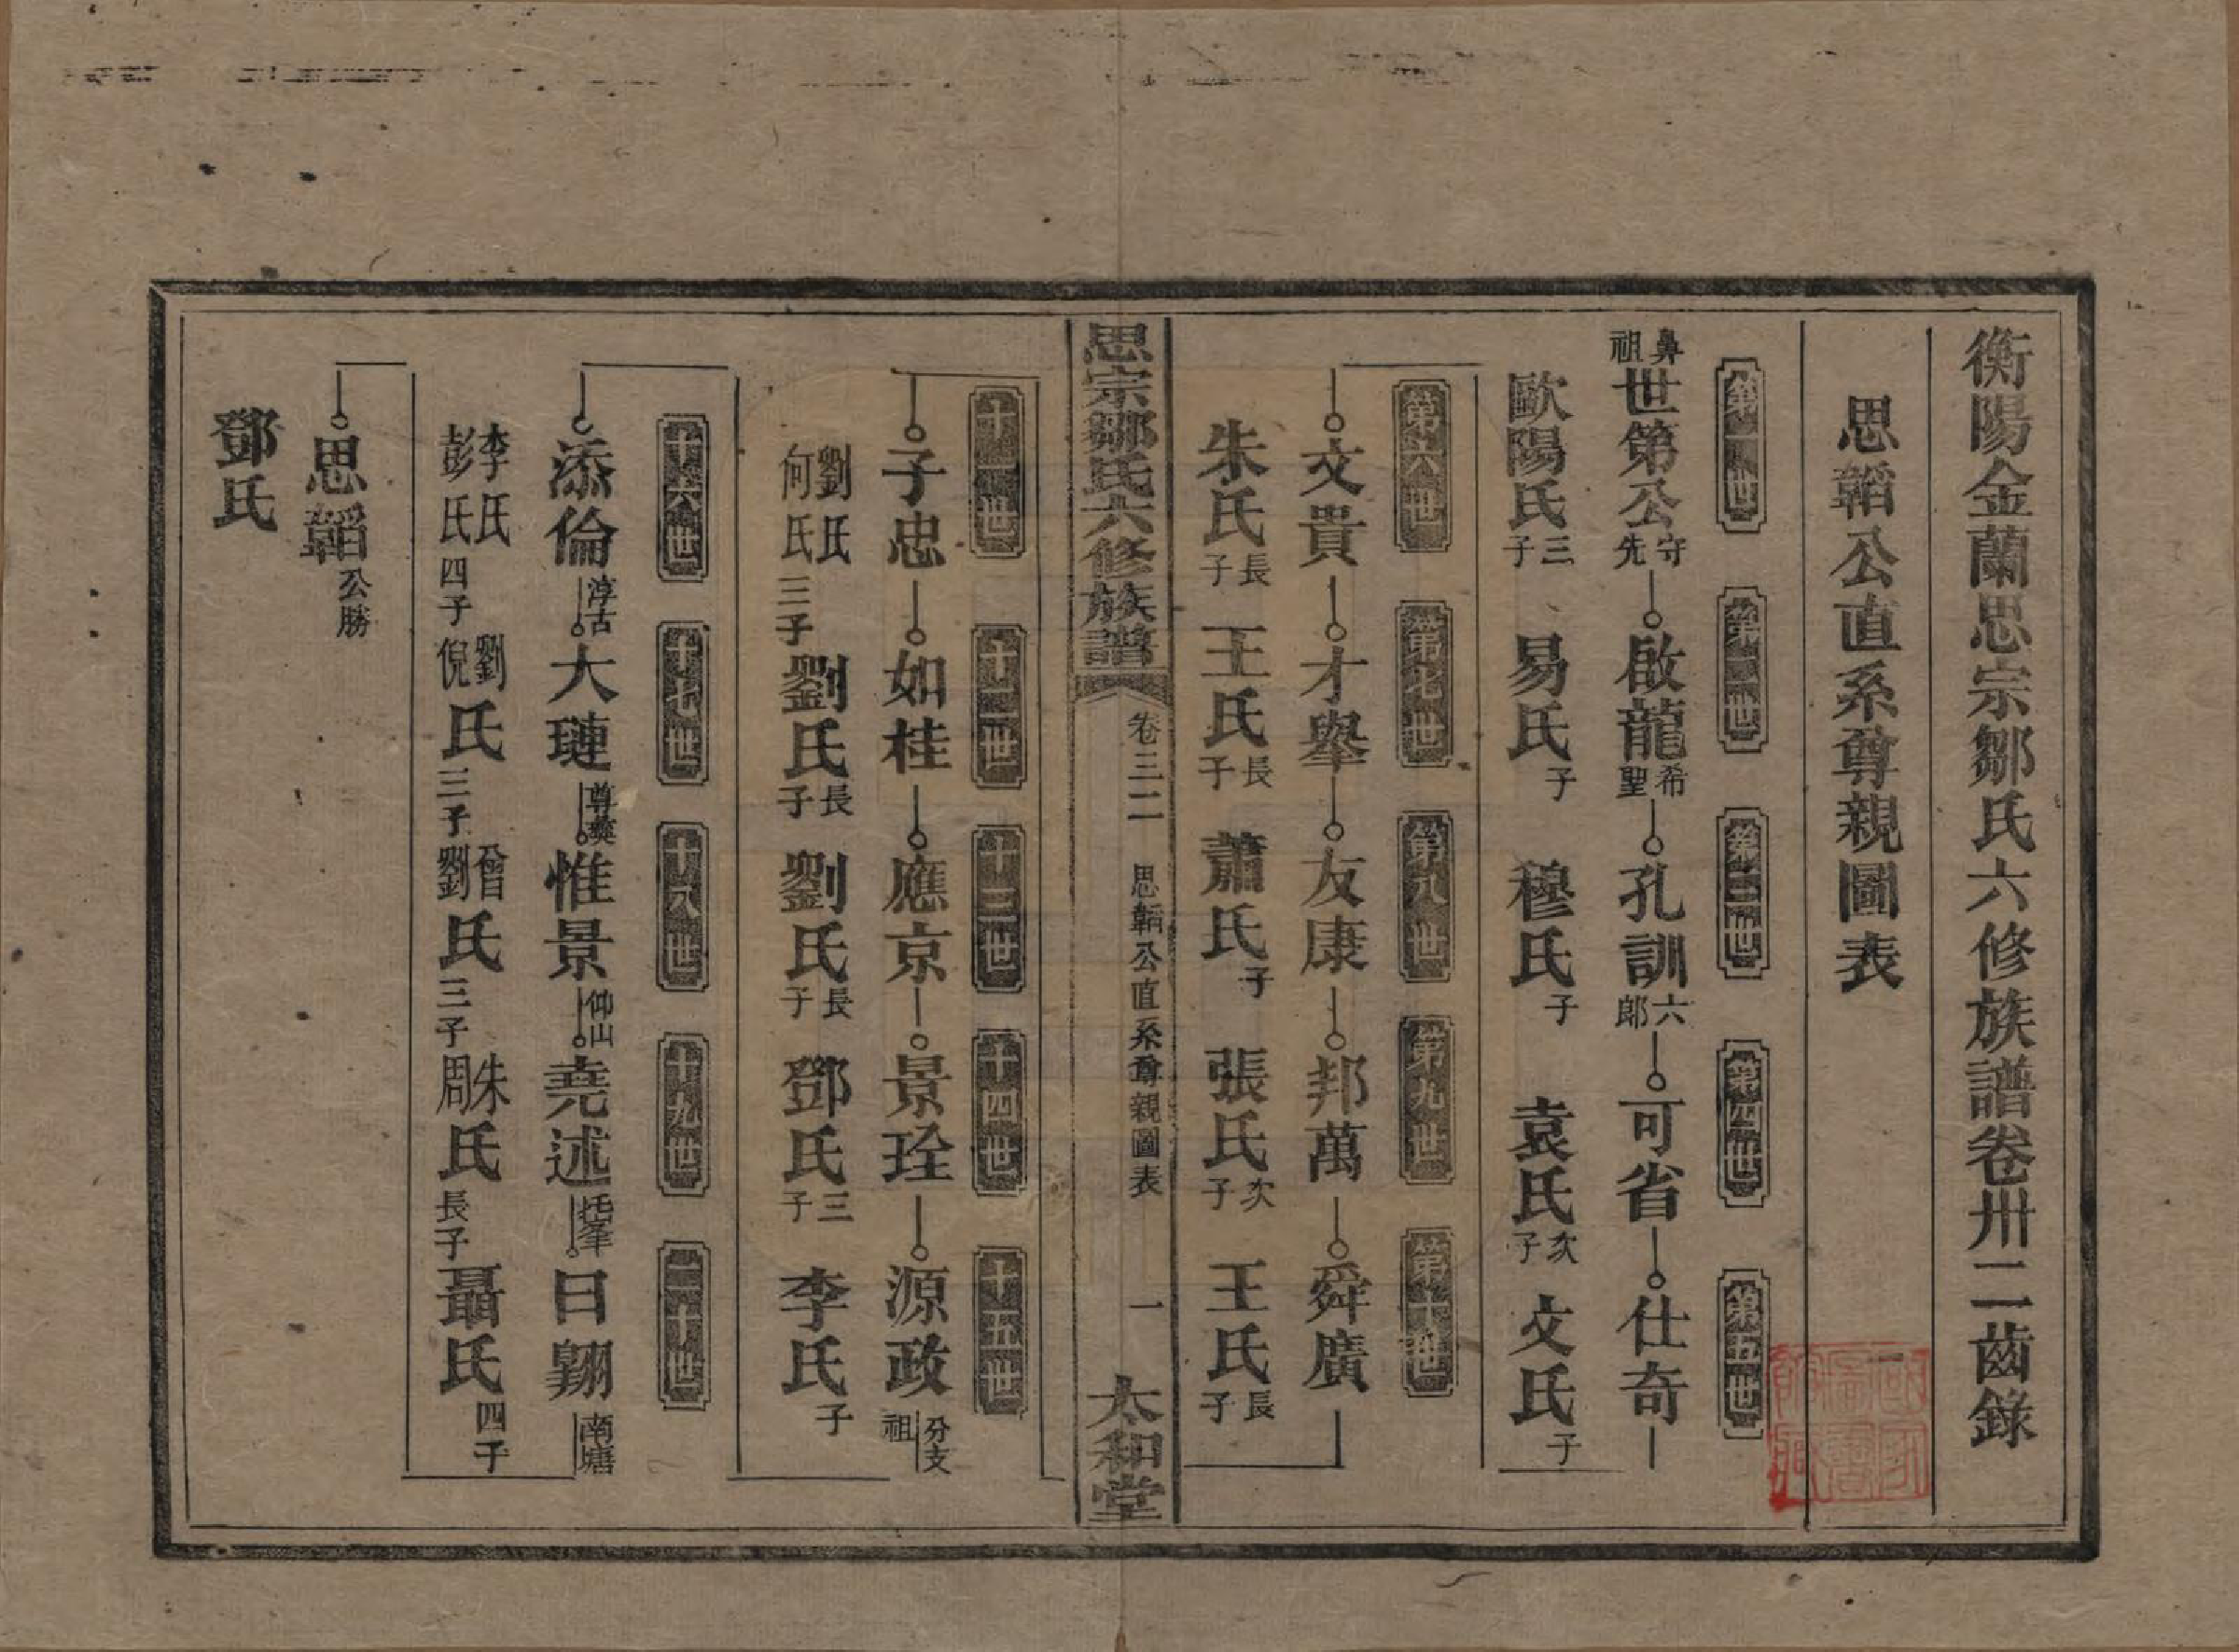 衡陽金蘭思宗鄒氏六修族譜卷卅二齒錄
思韜公直系尊親圖表
第一世 第二世 第三世 第四世 第五世
鼻祖世第公守先 啟龍希聖 孔訓六郎 可省 仕奇
歐陽氏三子 易氏子 穆氏子 袁氏次子 文氏子
第六世 第七世 第八世 第九世 第十世
文貴 才舉 友康 邦萬 舜廣
朱氏長子 王氏長子 蕭氏子 張氏次子 王氏長子
思宗鄒氏六修族譜 卷三二 思韜公直系尊親圖表 一 太和堂
十一世 十二世 十三世 十四世 十五世
子忠 如桂 應京 景珄 源政分支祖
劉氏何氏三子 劉氏長子 劉氏長子 鄧氏三子 李氏子
十六世 十七世 十八世 十九世 二十世
添倫淳古 大璉尊彝 惟景仰山 堯述 日翱南塘
李氏彭氏四子 劉倪氏三子 曾劉氏三子 朱周氏長子 聶氏四子
思韜公勝
鄧氏